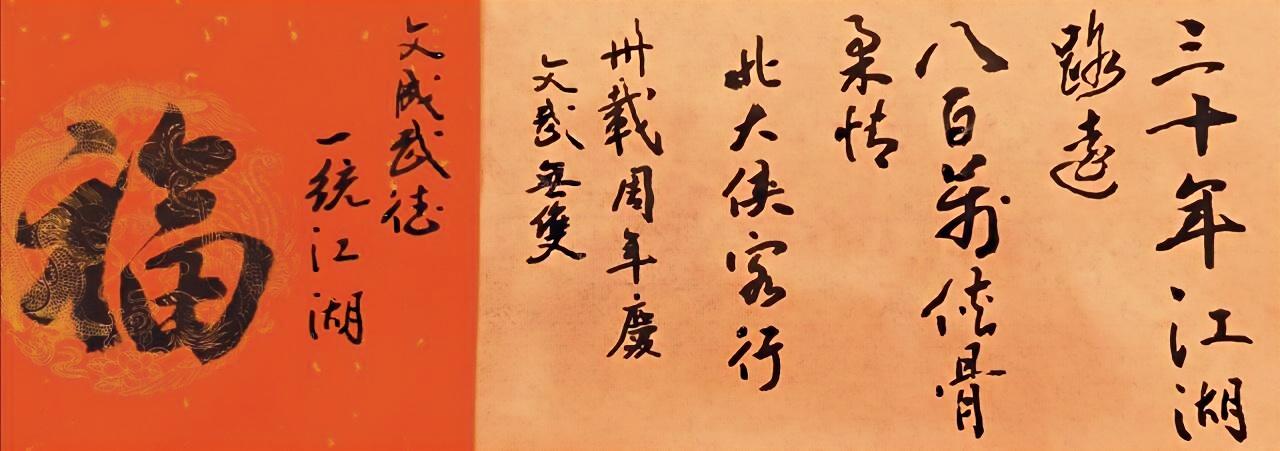 三十年江湖
路遠
八百萬俠骨
柔情
北大俠客行
卅載周年慶
文武無雙
文成武德
一統江湖
福